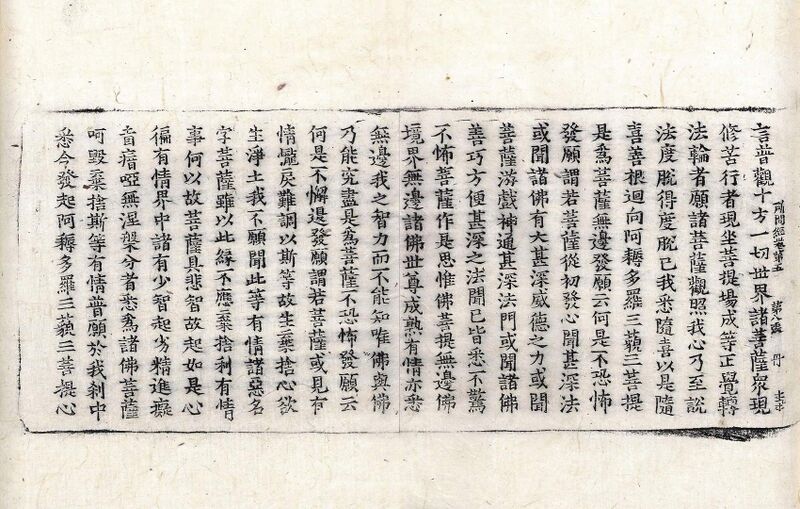 所問經卷第五 第八張 丹
言普觀十方一切世界諸菩薩眾現
修苦行者現坐菩提場成等正覺轉
法輪者願諸菩薩觀照我心乃至說
法度脫得度脫已我悉隨喜以是隨
喜善根迴向阿耨多羅三藐三菩提
是為菩薩無邊發願云何是不恐怖
發願謂若菩薩從初發心聞甚深法
或聞諸佛有大甚深威德之力或聞
菩薩游戲神通甚深法門或聞諸佛
善巧方便甚深之法聞已皆悉不驚
不怖菩薩作是思惟佛菩提無邊佛
境界無邊諸佛世尊成熟有情亦悉
無邊我之智力而不能知唯佛與佛
乃能究盡是為菩薩不恐怖發願云
何是不懈退發願謂若菩薩或見有
情儱戾難調以斯等故生棄捨心欲
生淨土我不願聞此等有情諸惡名
字菩薩雖以此緣不應棄捨利有情
事何以故菩薩具悲智故起如是心
徧有情界中諸有少智起劣精進癡
盲瘖啞無涅槃分者悉為諸佛菩薩
呵毀棄捨斯等有情普願於我剎中
悉令發起阿耨多羅三藐三菩提心